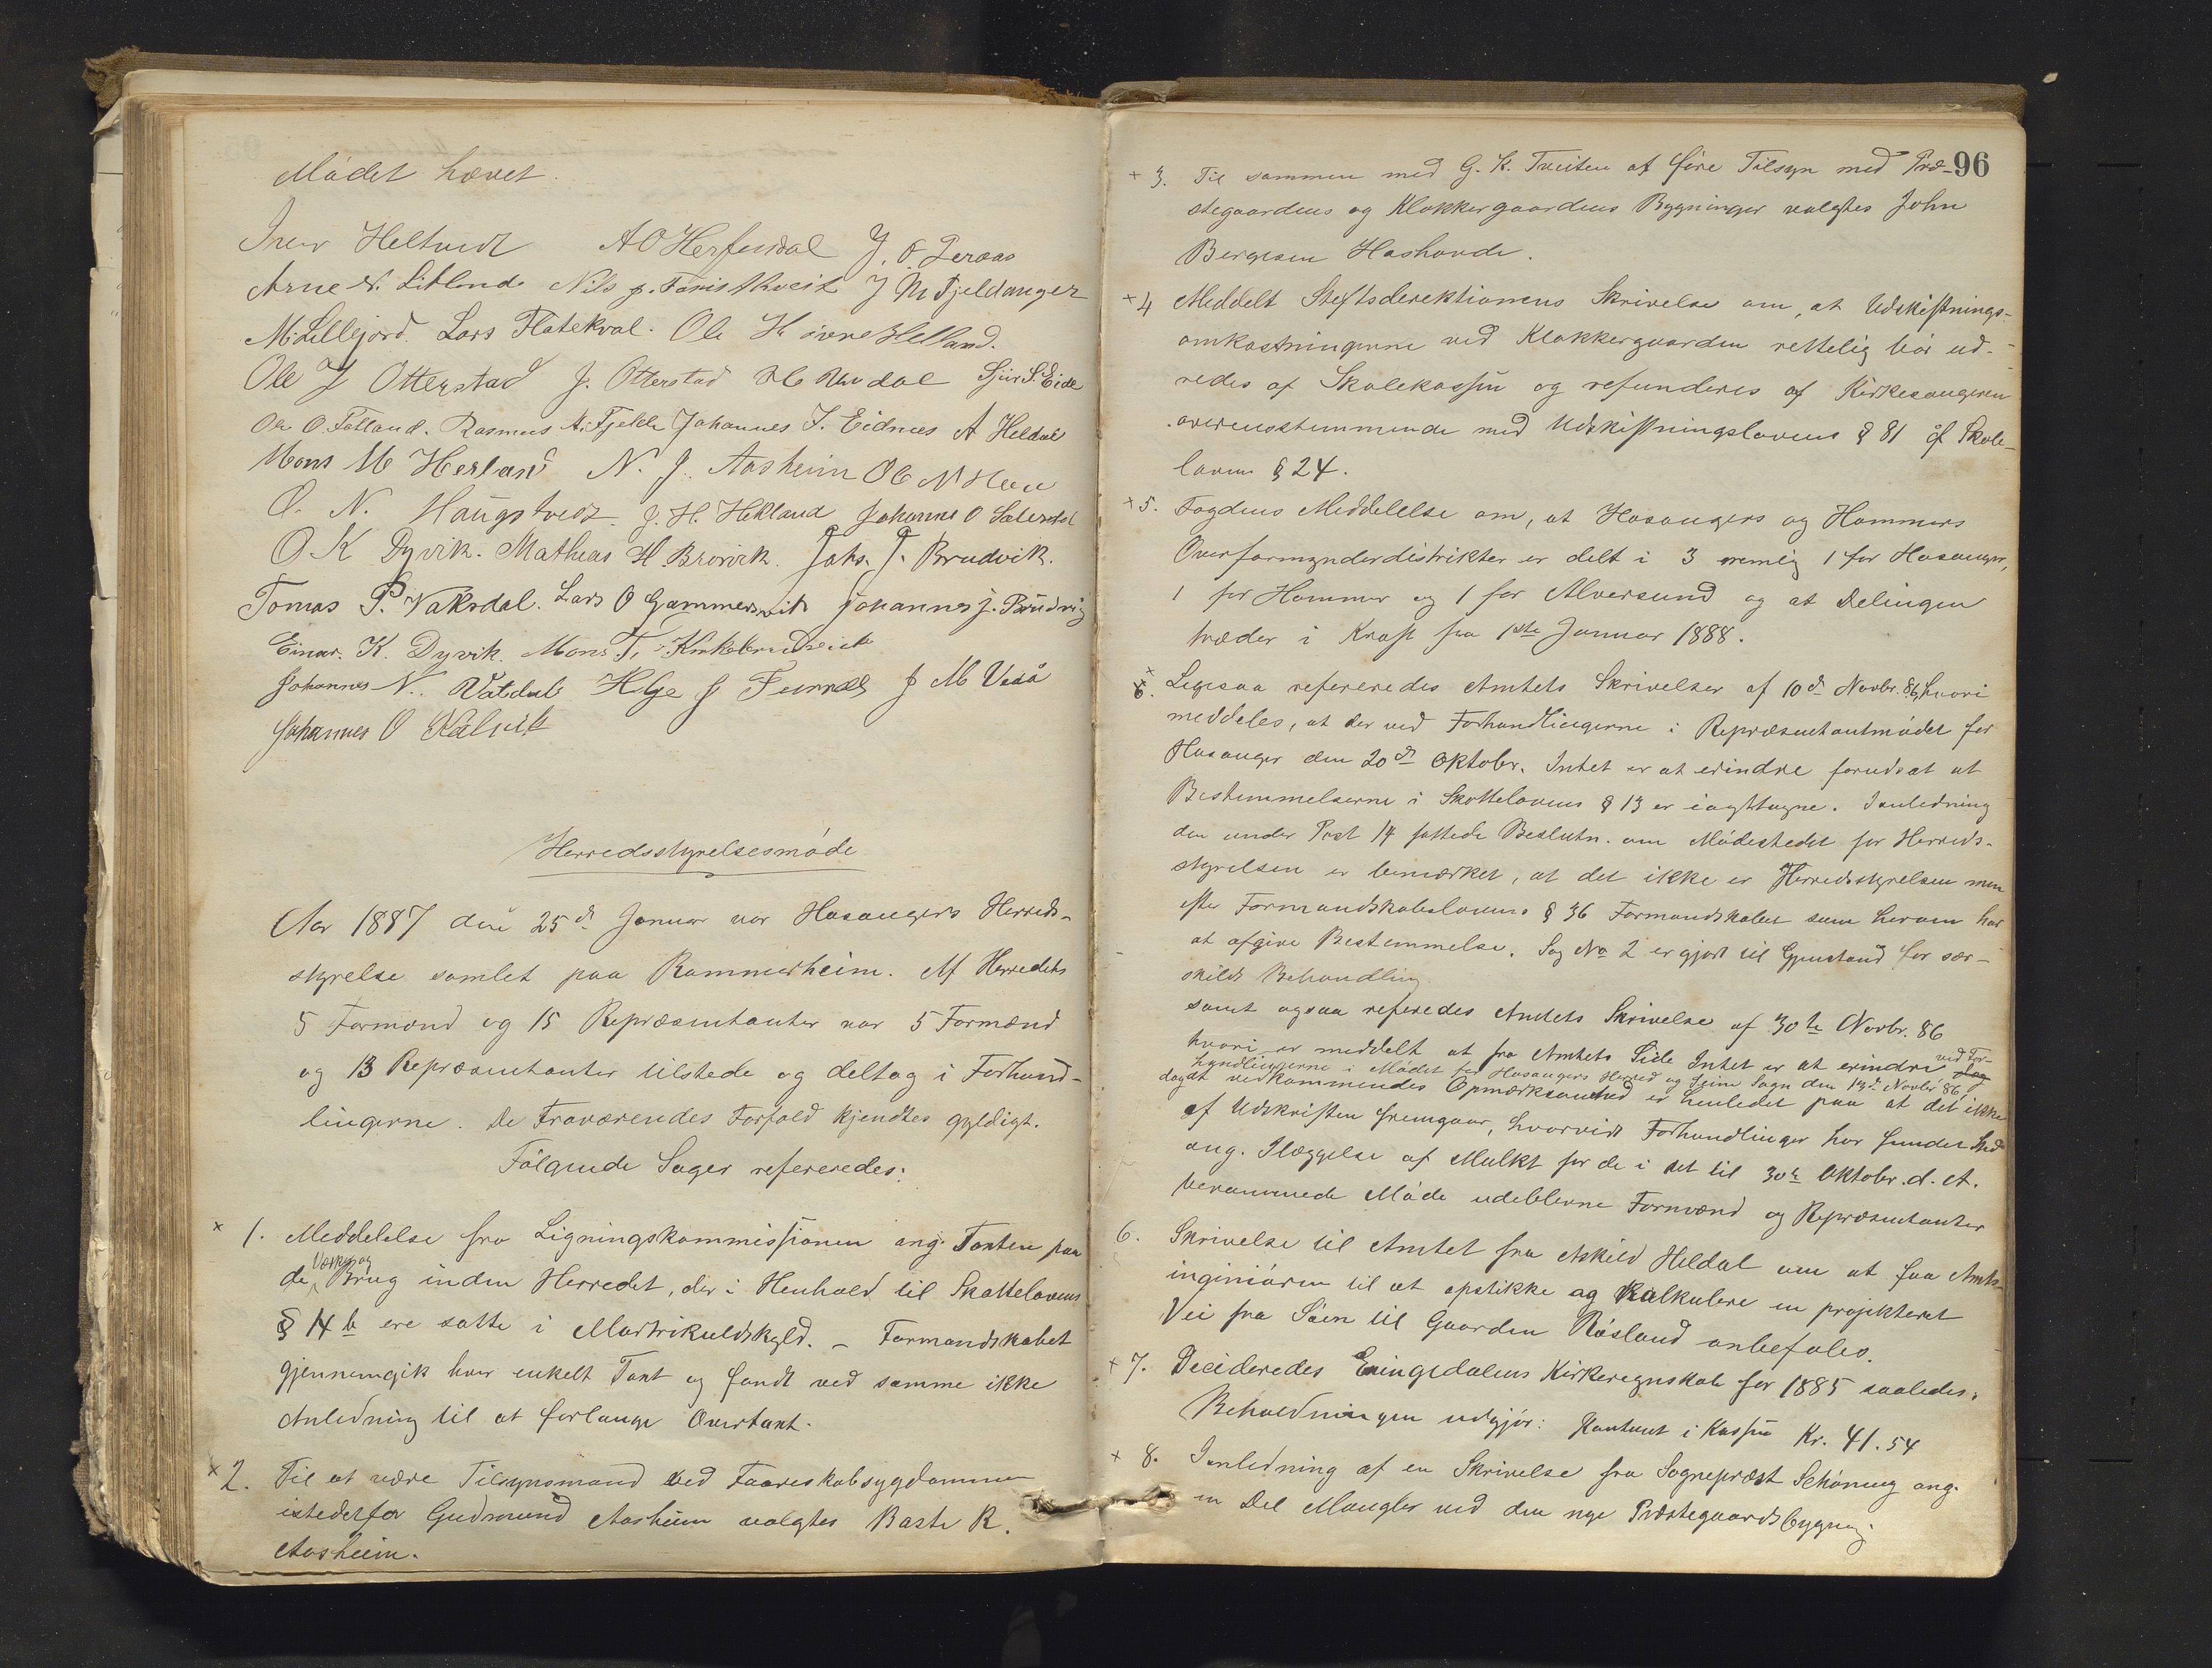 Mödet hævet.
Iver Heltvedt A O Herfindal J. O Leraas
Arne N. Litland. Nils J. Tveit J M Fjeldanger
M. Lillejord. Lars Flatekval. Ole H övre Helland.
Ole J Otterstad J. Otterstad Sjur S. Eide
Ole O. Fotland. Rasmus A. Fjelde Johannes J. Eidnæs A Heldal
Mons M Herland N. J. Aasheim Ole N Heen
O. N. Haugstvedt. J. H. Hekland Johannes O
O K Dyvik. Mathias H. Brorvik. Johs. J. Brudvik.
Tomas P. Vaksdal. Lars O Gammersvik Johannes J. Brudvig
Einar. K. Dyvik. Mons T.
Johannes N. Vatdal Helge J J M Vaså
Johannes O Kalvik
Herredsstyrelsesmöde
Aar 1887 den 25de Januar var Hosangers Herreds-
styrelse samlet paa Rammerheim. Af Herredets
5 Formænd og 15 Repræsentanter var 5 Formænd
og 13 Repræsentanter tilstede og deltog i Forhand-
lingerne. De Fraværendes Forfald kjendtes gyldigt.
Fölgende Sager refereredes:
x 1. Meddelelse fra Ligningskommissionen ang. Taxten paa
de Værker og Brug inden Herredet, der i Henhold til Skattelovens
§ 14 b ere satte i Martrikuldskyld. – Formandskabet
gjennemgik hver enkelt Taxt og fandt ved samme ikke
Anledning til at forlange Overtaxt.
x 2. Til at være Tilsynsmand ved Faareskabsygdommen
istedetfor Gudmund Aasheim valgtes Baste R.
Aasheim.
96
x 3. Til sammen med G. K. Tveiten at före Tilsyn med Præ-
stegaardens og Klokkergaardens Bygninger valgtes John
Bergesen Hashovde.
x 4 Meddelt Stiftsdirektionens Skrivelse om, at Udskiftnings-
omkostningerne ved Klokkergaarden rettelig bör ud-
redes af Skolekassen og refunderes af Kirkesangeren
overensstemmende med Udskiftningslovens § 81 cf Skole-
loven § 24.
x 5. Fogdens Meddelelse om, at Hosangers og Hammers
Overformynderdistrikter er delt i 3 nemlig 1 for Hosanger,
1 for Hammer og 1 for Alversund og at Delingen
træder i Kraft fra 1ste Januar 1888.
x 6. Ligesaa refereredes Amtets Skrivelser af 10de Novbr. 86, hvori
meddeles, at der ved Forhandlingerne i Repræsentantmödet for
Hosanger den 20de Oktobr. Intet er at erindre forudsat at
Bestemmelserne i Skattelovens § 13 er iagttagne. I anledning
den under Post 14 fattede Beslutn. om Mödestedet for Herreds-
styrelsen er bemærket, at det ikke er Herredsstyrelsen men
efter Formandskabslovens § 36 Formandskabet som herom har
at afgive Bestemmelse. Sag No 2 er gjort til Gjenstand for sær-
skildt Behandling
samt ogsaa referedes Amtets Skrivelse af 30te Novbr. 86
hvori er meddelt at fra Amtets Side Intet er at erindre ved For-
handlingerne i Mödet for Hosangers Herred og Seim Sogn den 13de Novbr 86,
dog at vedkommendes Opmærksomhed er henledet paa at det ikke
af Udskriften fremgaar, hvorvidt Forhandlinger har fundet Sted
ang. Ilæggelse af Mulkt for de i det til 30te Oktobr. d. A.
berammede Möde udeblevne Formænd og Repræsentanter
6. Skrivelse til Amtet fra Askild Heldal om at faa Amts-
inginiören til at opstikke og kalkulere en projekteret
Vei fra Söen til Gaarden Rösland anbefales.
x 7. Decideredes Eningedalens Kirkeregnskab for 1885 saaledes:
Beholdningen udgjör: Kontant i Kassen Kr. 41.54
x 8. I anledning af en Skrivelse fra Sognepræst Schöning ang.
en Del Mangler ved den nye Præstegaardsbygning